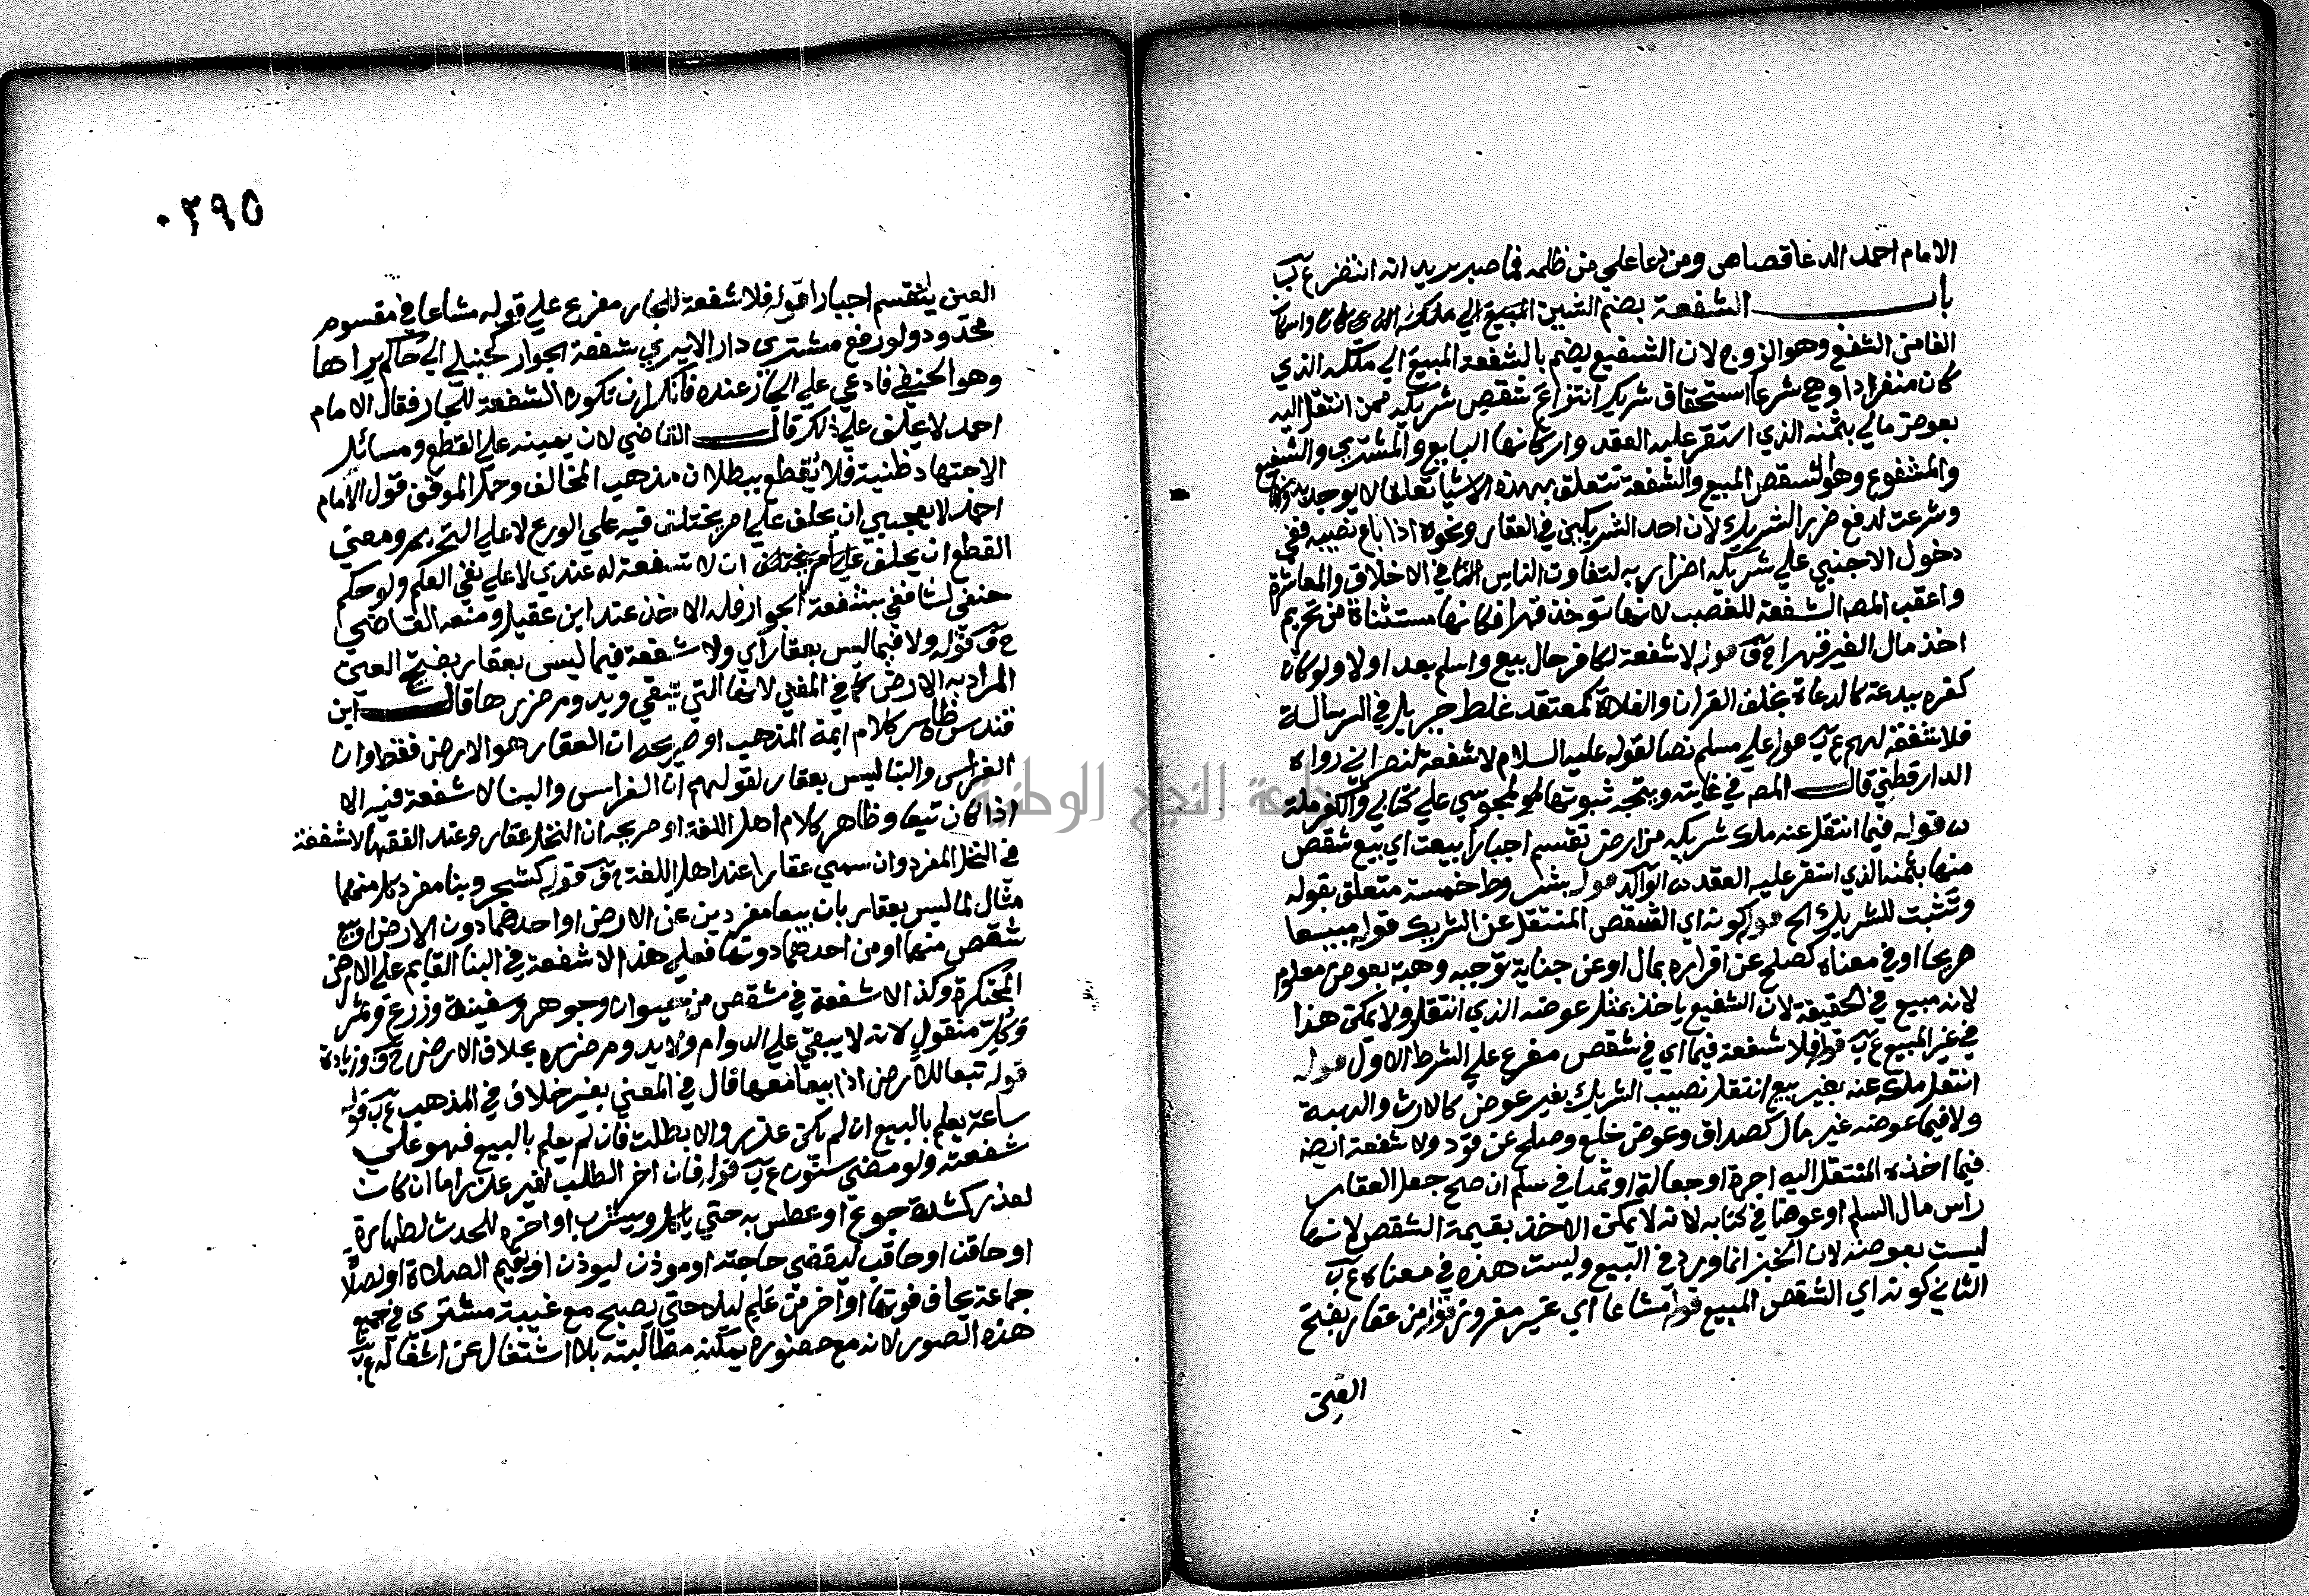 الامام احمد الدعا قصاص ومن دعا علي من ظلمه فما صبر يريد انه انتصر ع ب
باب الشفعة بضم الشين المبيع الي ملكه الذي كان واسكان
الفا من الشفع وهو الزوج لان الشفيع يضم بالشفعة المبيع الي ملكه الذي
كان منفردا وهي شرعا استحقاق شريك انتزاع شقص شريكه ممن انتقل اليه
بعوض مالي بثمنه الذي استقر عليه العقد واركانها البايع والمشتري والشفيع
والمشفوع وهو الشقص المبيع والشفعة تتعلق بهذه الاشيا تعلقا لا يوجد بدونها
وشرعت لدفع ضرر الشريك لان احد الشريكين في العقار ونحوه اذا باع نصيبه ففي
دخول الاجنبي علي شريكه اضرار به لتفاوت الناس في الاخلاق والمعاشرة
واعقب المص الشفعة للغصب لانها توخذ قهرا فكانها مستثناة من تحريم
اخذ مال الغير قهرا ح ف قوله لا شفعة لكافر حال بيع واسلم بعد اولا ولو كان
كفره ببدعة كالدعاة بخلق القران والغلاة كمعتقد غلط جبريل في الرسالة
فلا شفعة لهم ع ب قوله علي مسلم نصا لقوله عليه السلام لا شفعة لنصراني رواه
الدارقطني قال المص في غايته ويتجه ثبوتها لمجوسي علي كتابي والكفر ملة
قوله فيما انتقل عنه ملك شريكه من ارض تقسم اجبارا بيعت اي بيع شقص
منها بثمنه الذي استقر عليه العقد قوله بشروط خمسة متعلق بقوله
وتثبت للشريك الخ قوله كونه اي الشقص المنتقل عن الشريك قوله مبيعا
صريحا او في معناه كصلح عن اقراره بمال او عن جناية توجبه وهبة بعوض معلوم
لانه مبيع في الحقيقة لان الشفيع ياخذ بمثل عوضه الذي انتقل ولا يمكن هذا
في غير المبيع ع ب قوله فلا شفعة فيما اي في شقص مفرع علي الشرط الاول قوله
انتقل ملك عنه بغير بيع انتقل نصيب الشريك بغير عوض كالارث والهبة
ولا فيما عوضه غير مال كصداق وعوض خلع وصلح عن قود ولا شفعة ايضه
فيما اخذه المنتقل اليه اجرة او جعالة او ثمنا في سلم ان صح جعل العقار
راس مال السلم او عوضا في كتابه لانه لا يمكن الاخذ بقيمة الشقص لانها
ليست بعوضه لان الخبر انما ورد في البيع وليست هذه في معناه ع ب
الثاني كونه اي الشقص المبيع قوله مشاعا اي غير مفروز قوله من عقار بفتح
العين
٠٣٩٥
العين ينقسم اجبارا قوله فلا شفعة للجار مفرع علي قوله مشاعا في مقسوم
محدود ولو رفع مشتري دار لا يري شفعة الجوار كحنبلي الي حاكم يراها
وهو الحنفي فادعي علي الجار عنده فانكر ان تكون الشفعة للجار فقال الامام
احمد لا يحلف علي ذلك قال القاضي لان يمينه علي القطع ومسائل
الاجتهاد ظنية فلا يقطع ببطلان مذهب المخالف وحمل الموفق قول الامام
احمد لا يعجبني ان يحلف علي امر يختلف فيه علي الورع لا علي التحريم ومعني
القطع ان يحلف علي امر يختلف ان لا شفعة له عندي لا علي نفي العلم ولو حكم
حنفي لشافعي بشفعة الجوار فله الاخذ عند ابن عقيل ومنعه القاضي
ح ف قوله ولا فيما ليس بعقار اي ولا شفعة فيما ليس بعقار بفتح العين
المراد به الارض كما في المغني لانها التي تبقي ويدوم ضررها قال ابن
قندس ظاهر كلام ايمة المذهب او صريحه ان العقار هو الارض فقط وان
الغراس والبنا ليس بعقار لقولهم ان الغراس والبنا لا شفعة فيه الا
اذا كان تبعا وظاهر كلام اهل اللغة او صريحه ان النخل عقار وعند الفقها لا شفعة
في النخل المفرد وان سمي عقارا عند اهل اللغة ح ف قوله كشجر وبنا مفرد كل منهما
مثال لما ليس بعقار بان بيعا مفردين عن الارض او احدهما دون الارض او بيع
شقص منهما او من احدهما دونها فعلي هذا لا شفعة في البنا القايم علي الارض
المحتكرة وكذا لا شفعة في مشقص من حيوان وجوهر وسفينة وزرع وثمر
وكل منقول لانه لا يبقي علي الدوام ولا يدوم ضرره بخلاف الارض ح ف وزيادة
قوله تبعا للارض اذا بيعا معها قال في المغني بغير خلاف في المذهب ع ب قوله
ساعة يعلم بالبيع ان لم يكن عذر والا بطلت فان لم يعلم بالبيع فهو علي
شفعته ولو مضي سنون ع ب قوله فان اخر الطلب لغير عذر اما ان كان
لعذر كشدة جوع او عطس به حتي ياكل ويشرب او اخره المحدث لطهارة
او حاقن او حاقب ليقضي حاجته او موذن ليوذن او يقيم الصلاة او لصلاة
جماعة يخاف فوتها او اخر من علم ليلا حتي يصبح مع غيبة مشتري في جميع
هذه الصور لانه مع حضوره يمكنه مطالبته بلا اشتغال عن اشغاله ع ب
جامعة النجاح الوطنية